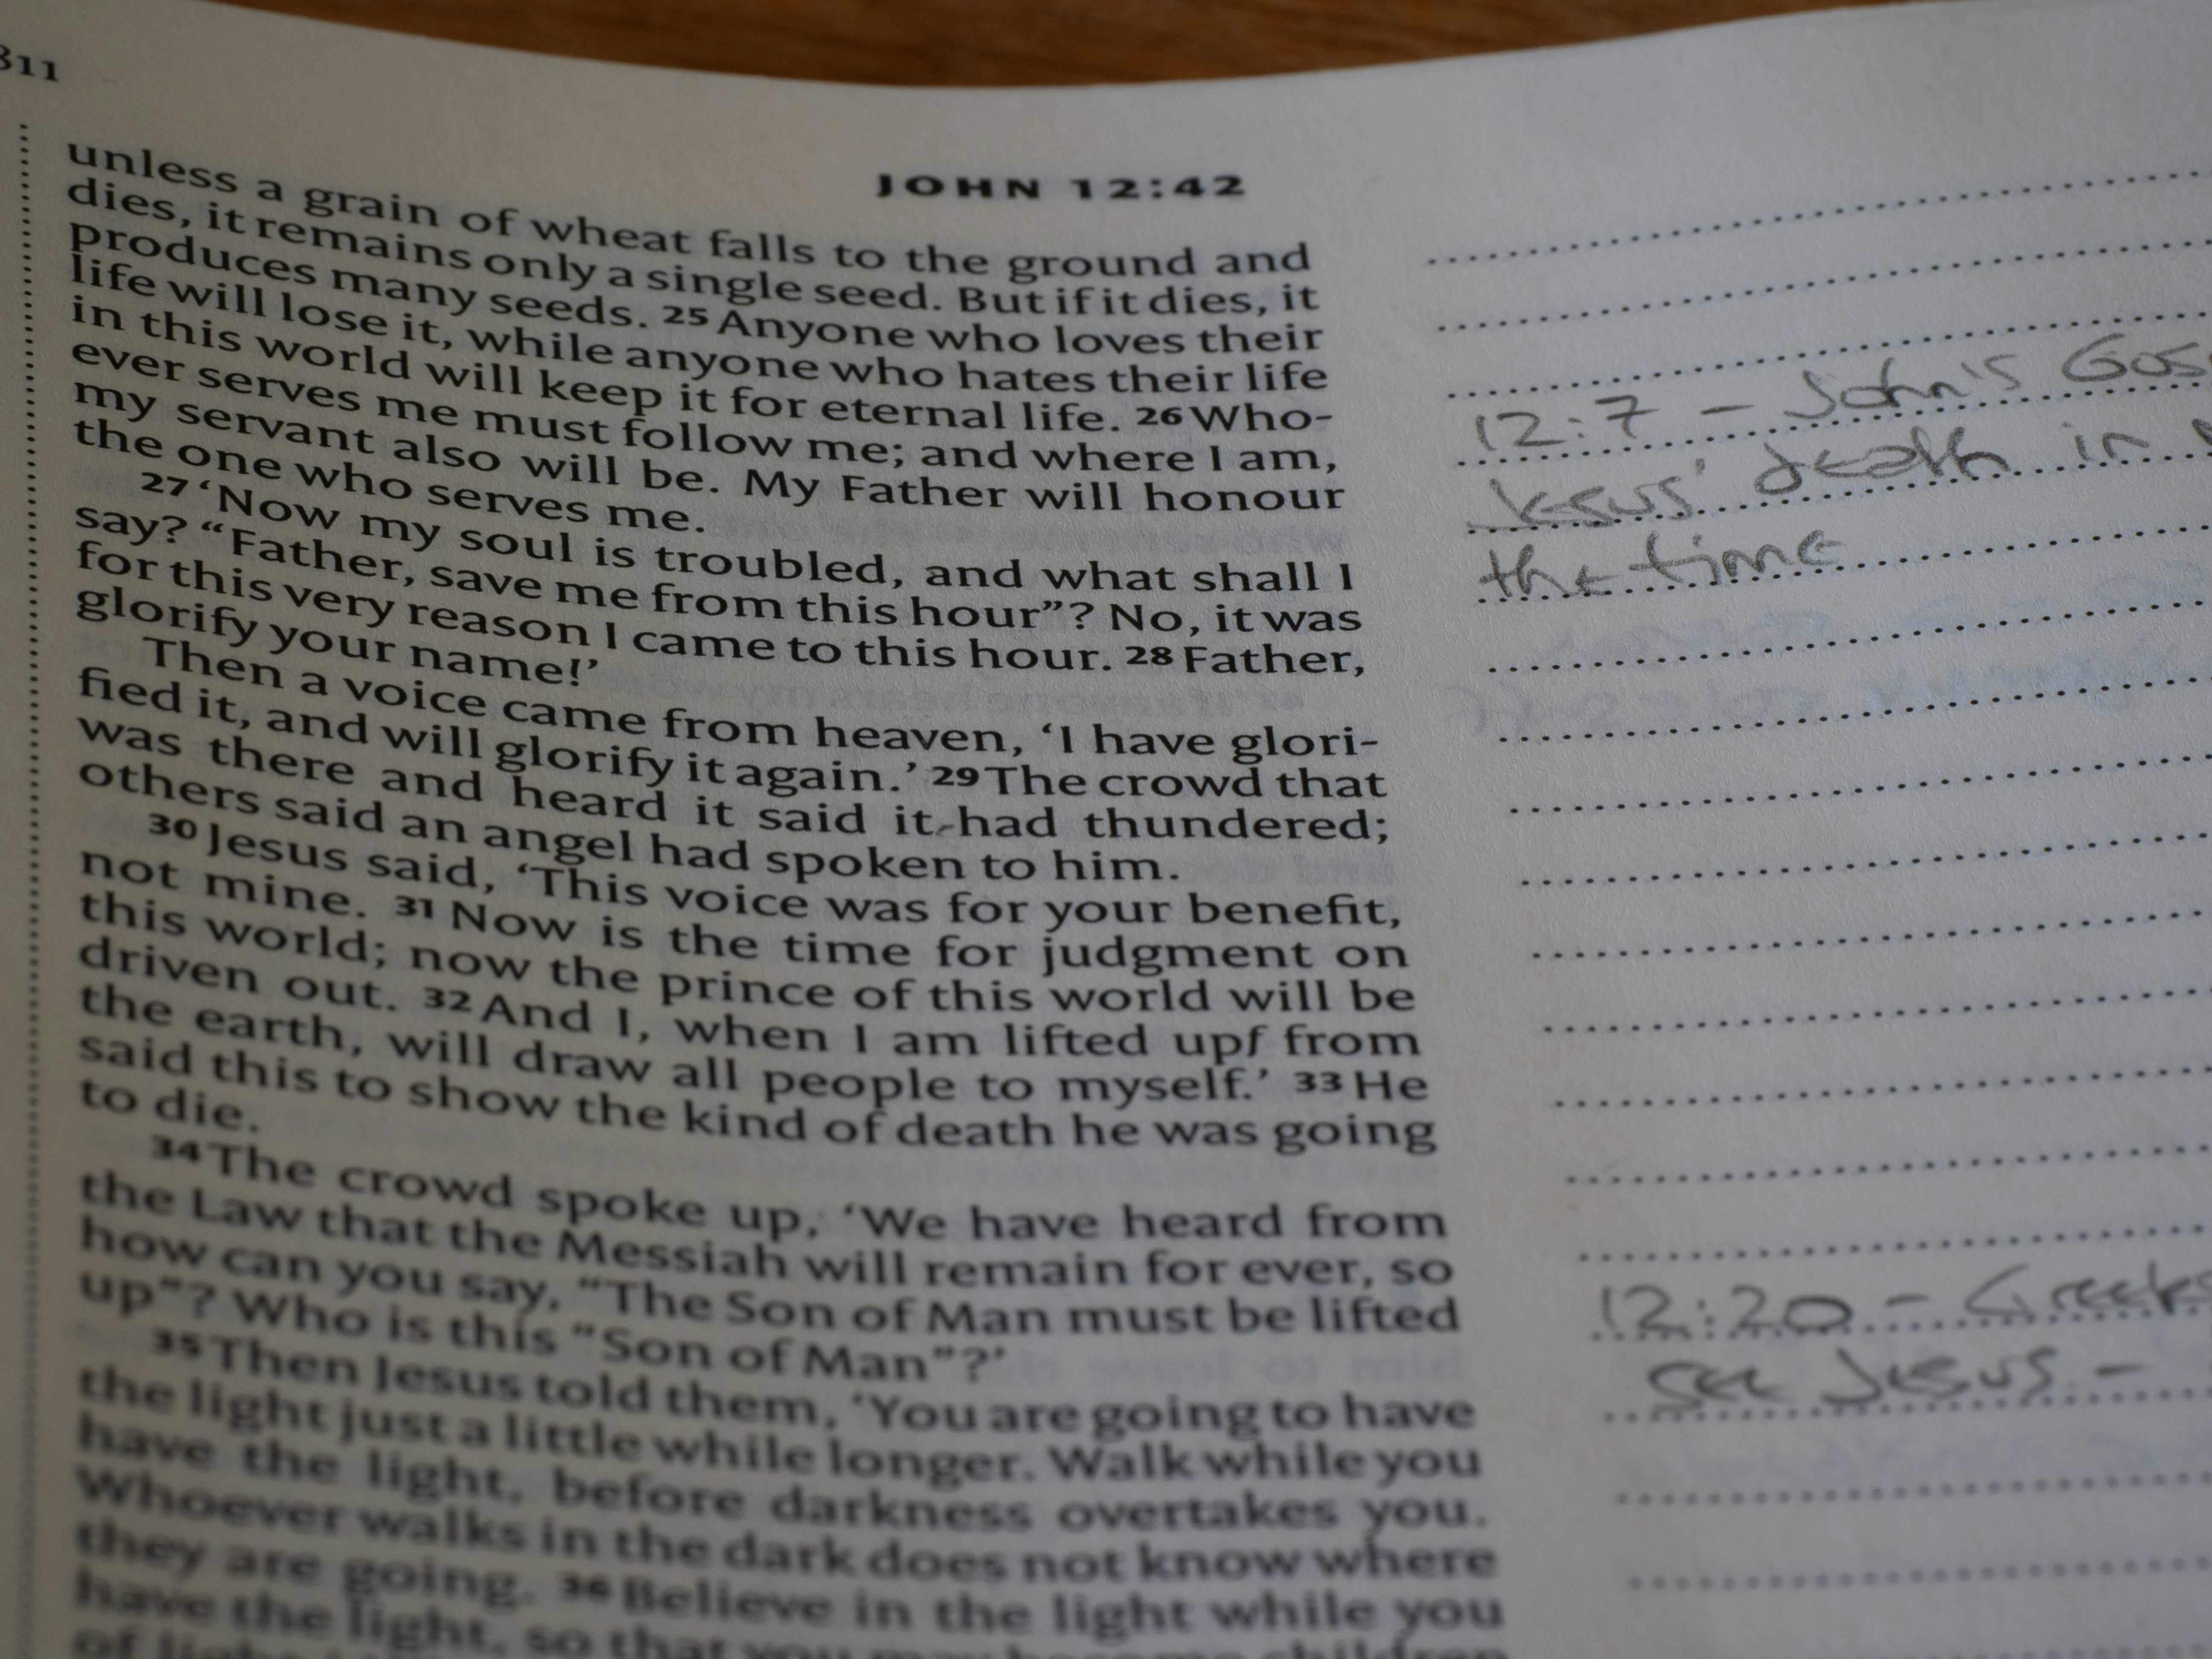 311
JOHN 12:42
unless a grain of wheat falls to the ground and
dies, it remains only a single seed. But if it dies, it
produces many seeds. 25 Anyone who loves their
life will lose it, while anyone who hates their life
in this world will keep it for eternal life. 26 Who-
ever serves me must follow me; and where I am,
my servant also will be. My Father will honour
the one who serves me.
27 ‘Now my soul is troubled, and what shall I
say? “Father, save me from this hour”? No, it was
for this very reason I came to this hour. 28 Father,
glorify your name!’
Then a voice came from heaven, ‘I have glori-
fied it, and will glorify it again.’ 29 The crowd that
was there and heard it said it had thundered;
others said an angel had spoken to him.
30 Jesus said, ‘This voice was for your benefit,
not mine. 31 Now is the time for judgment on
this world; now the prince of this world will be
driven out. 32 And I, when I am lifted up f from
the earth, will draw all people to myself.’ 33 He
said this to show the kind of death he was going
to die.
34 The crowd spoke up, ‘We have heard from
the Law that the Messiah will remain for ever, so
how can you say, “The Son of Man must be lifted
up”? Who is this “Son of Man”?’
35 Then Jesus told them, ‘You are going to have
the light just a little while longer. Walk while you
have the light, before darkness overtakes you.
Whoever walks in the dark does not know where
they are going. 36 Believe in the light while you
have the light, so that you may become children
12:7 - John's Gos
Jesus' death in
the time
12:20 - Greeks
see Jesus -